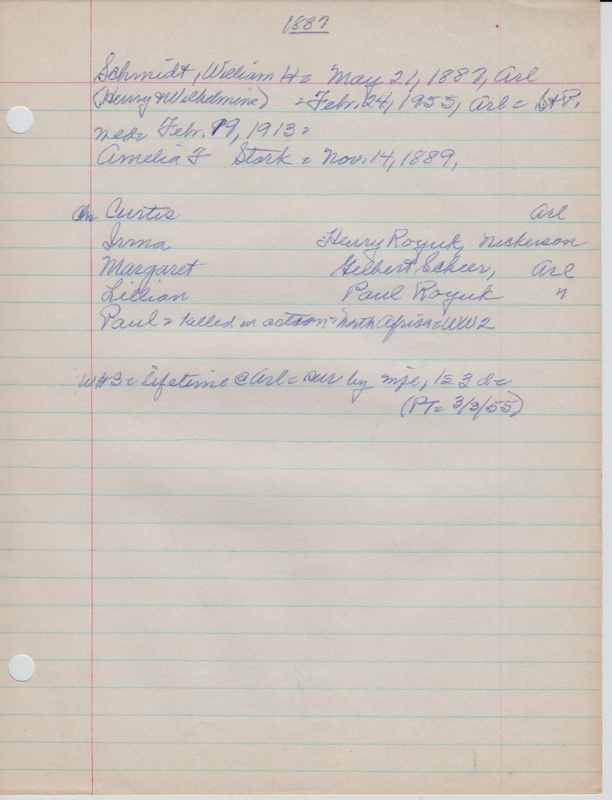 1887
Schmidt, William H = May 21, 1887, Arl
(Henry & Wilhelmine) = Feb. 24, 1955, Arl = St P.
wed = Feb. 19, 1913 =
Amelia F Stork = Nov. 14, 1889,
Ch Curtis Arl
Irma Henry Royuk, Nickerson
Margaret Gilbert Scheer, Arl
Lillian Paul Royuk "
Paul = killed in action = North Africa = WW2
WHS = lifetime @ Arl = sur by wife, 1 s 3 d =
(PT = 3/3/55)